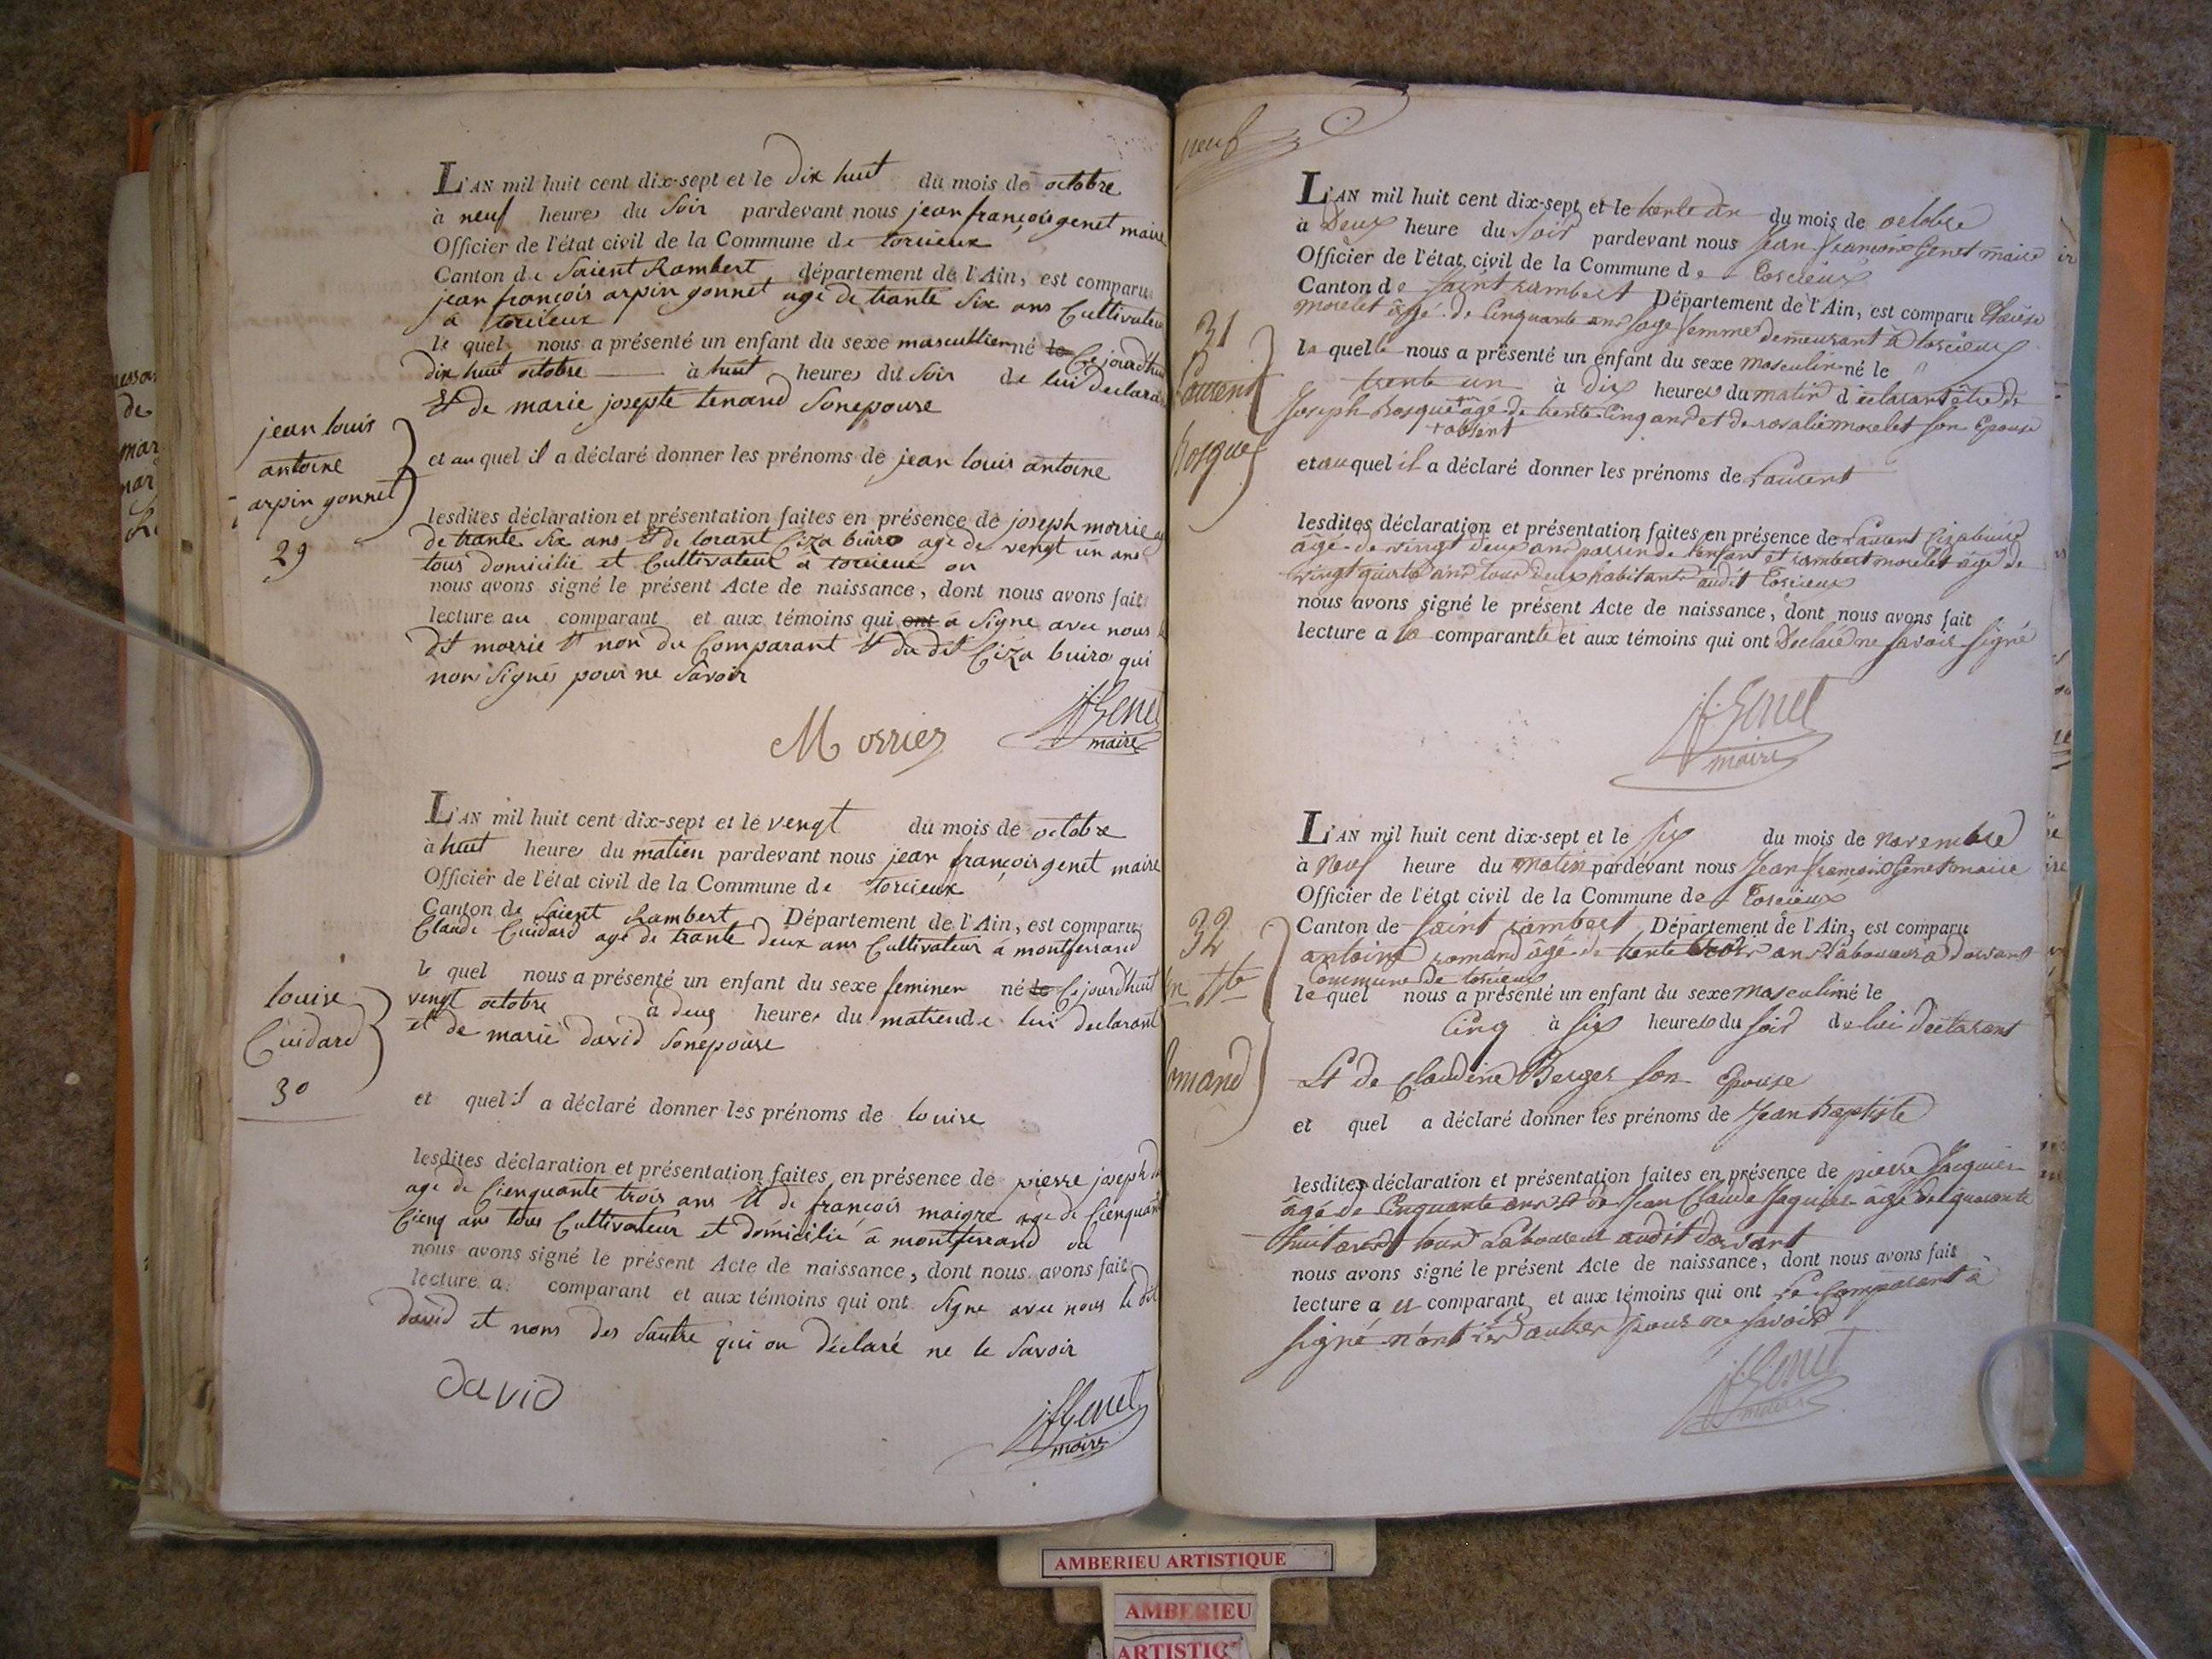 jean louis
antoine
arpin gonnet
29
L'AN mil huit cent dix-sept et le dix huit du mois de octobre
à neuf heures du Soir pardevant nous jean françois genet maire
Officier de l'état civil de la Commune de torcieux
Canton de Saient Rambert, département de l'Ain, est comparu
jean françois arpin gonnet age de trante Six ans Cultivateur
a torcieux
le quel nous a présenté un enfant du sexe mascullien né le Ce jourdhui
dix huit octobre à huit heures du Soir de lui declarant
Et de marie josepte tenand Sonepouse
et au quel il a déclaré donner les prénoms de jean louis antoine
lesdites déclaration et présentation faites en présence de joseph morrie
de trante Six ans Et de lorant Ciza buiro age de vengt un ans
tous domicilié et Cultivateur a torcieue on
nous avons signé le présent Acte de naissance, dont nous avons fait
lecture au comparant et aux témoins qui ont a Signe avec nous le
dit morrie Et non du Comparant Et du dit Ciza buiro qui
nons Signés pour ne Savoir
Morrier
JfGenet
maire
louise
Cuidard
30
L'AN mil huit cent dix-sept et le vengt du mois de octobre
à huit heures du matien pardevant nous jean françois genet maire
Officier de l'état civil de la Commune de torcieux
Canton de Saient Rambert, Département de l'Ain, est comparu
Claude Cuidard age de trante deux ans Cultivateur a montferrand
le quel nous a présenté un enfant du sexe feminen né le Ce jourdhuit
vengt octobre à deux heures du matien de lui declarant
et de marie david Sonepouse
et quel il a déclaré donner les prénoms de louise
lesdites déclaration et présentation faites en présence de pierre joseph
age de Cienquante trois ans Et de françois maigre age de Cienquante
Cienq ans tous Cultivateur et domicilié a montferrand on
nous avons signé le présent Acte de naissance, dont nous avons fait
lecture a comparant et aux témoins qui ont Signe avec nous le dit
david et nons des Sautre qui on déclaré ne le Savoir
david
JfGenet
maire
neuf
31
Laurent
Bosque
L'AN mil huit cent dix-sept et le trente un du mois de octobre
à Deux heure du Soir pardevant nous Jean françois Genet maire
Officier de l'état civil de la Commune de Torcieux
Canton de Saint rambert Département de l'Ain, est comparu
morelet âgé de Cinquante ans Sage femme demeurant à torcieux
la quelle nous a présenté un enfant du sexe masculin né le
trente un à dix heures du matin déclarant être de
Joseph Bosque âgé de trente Cinq ans et de rosalie morelet son Epouse
+ absent
et au quel il a déclaré donner les prénoms de Laurent
lesdites déclaration et présentation faites en présence de Laurent Cizabuiro
âgé de vingt deux ans parrin de l'enfant et rambert morelet âgé de
vingt quatre ans tous deux habitants audit Torcieux
nous avons signé le présent Acte de naissance, dont nous avons fait
lecture a la comparante et aux témoins qui ont Déclaré ne savoir signé
JfGenet
maire
32
Jn Bte
Romand
L'AN mil huit cent dix-sept et le six du mois de novembre
à neuf heure du matin pardevant nous Jean françois Genet maire
Officier de l'état civil de la Commune de Torcieux
Canton de Saint rambert Département de l'Ain, est comparu
antoine romand âgé de trente trois ans Laboureur a dorvant
Commune de torcieux
le quel nous a présenté un enfant du sexe masculin né le
Cinq à six heures du soir de lui Déclarant
Et de Claudine Berger son Epouse
et quel a déclaré donner les prénoms de Jean Baptiste
lesdites déclaration et présentation faites en présence de pierre Jacquier
âgé de Cinquante ans et de Jean Claude Jaquier âgé de quarante
huit ans tous Laboureur audit dorvant
nous avons signé le présent Acte de naissance, dont nous avons fait
lecture a u comparant et aux témoins qui ont Le Comparant a
signé n'ont les autres pour ne savoir
JfGenet
maire
AMBERIEU ARTISTIQUE
AMBERIEU
ARTISTIQ